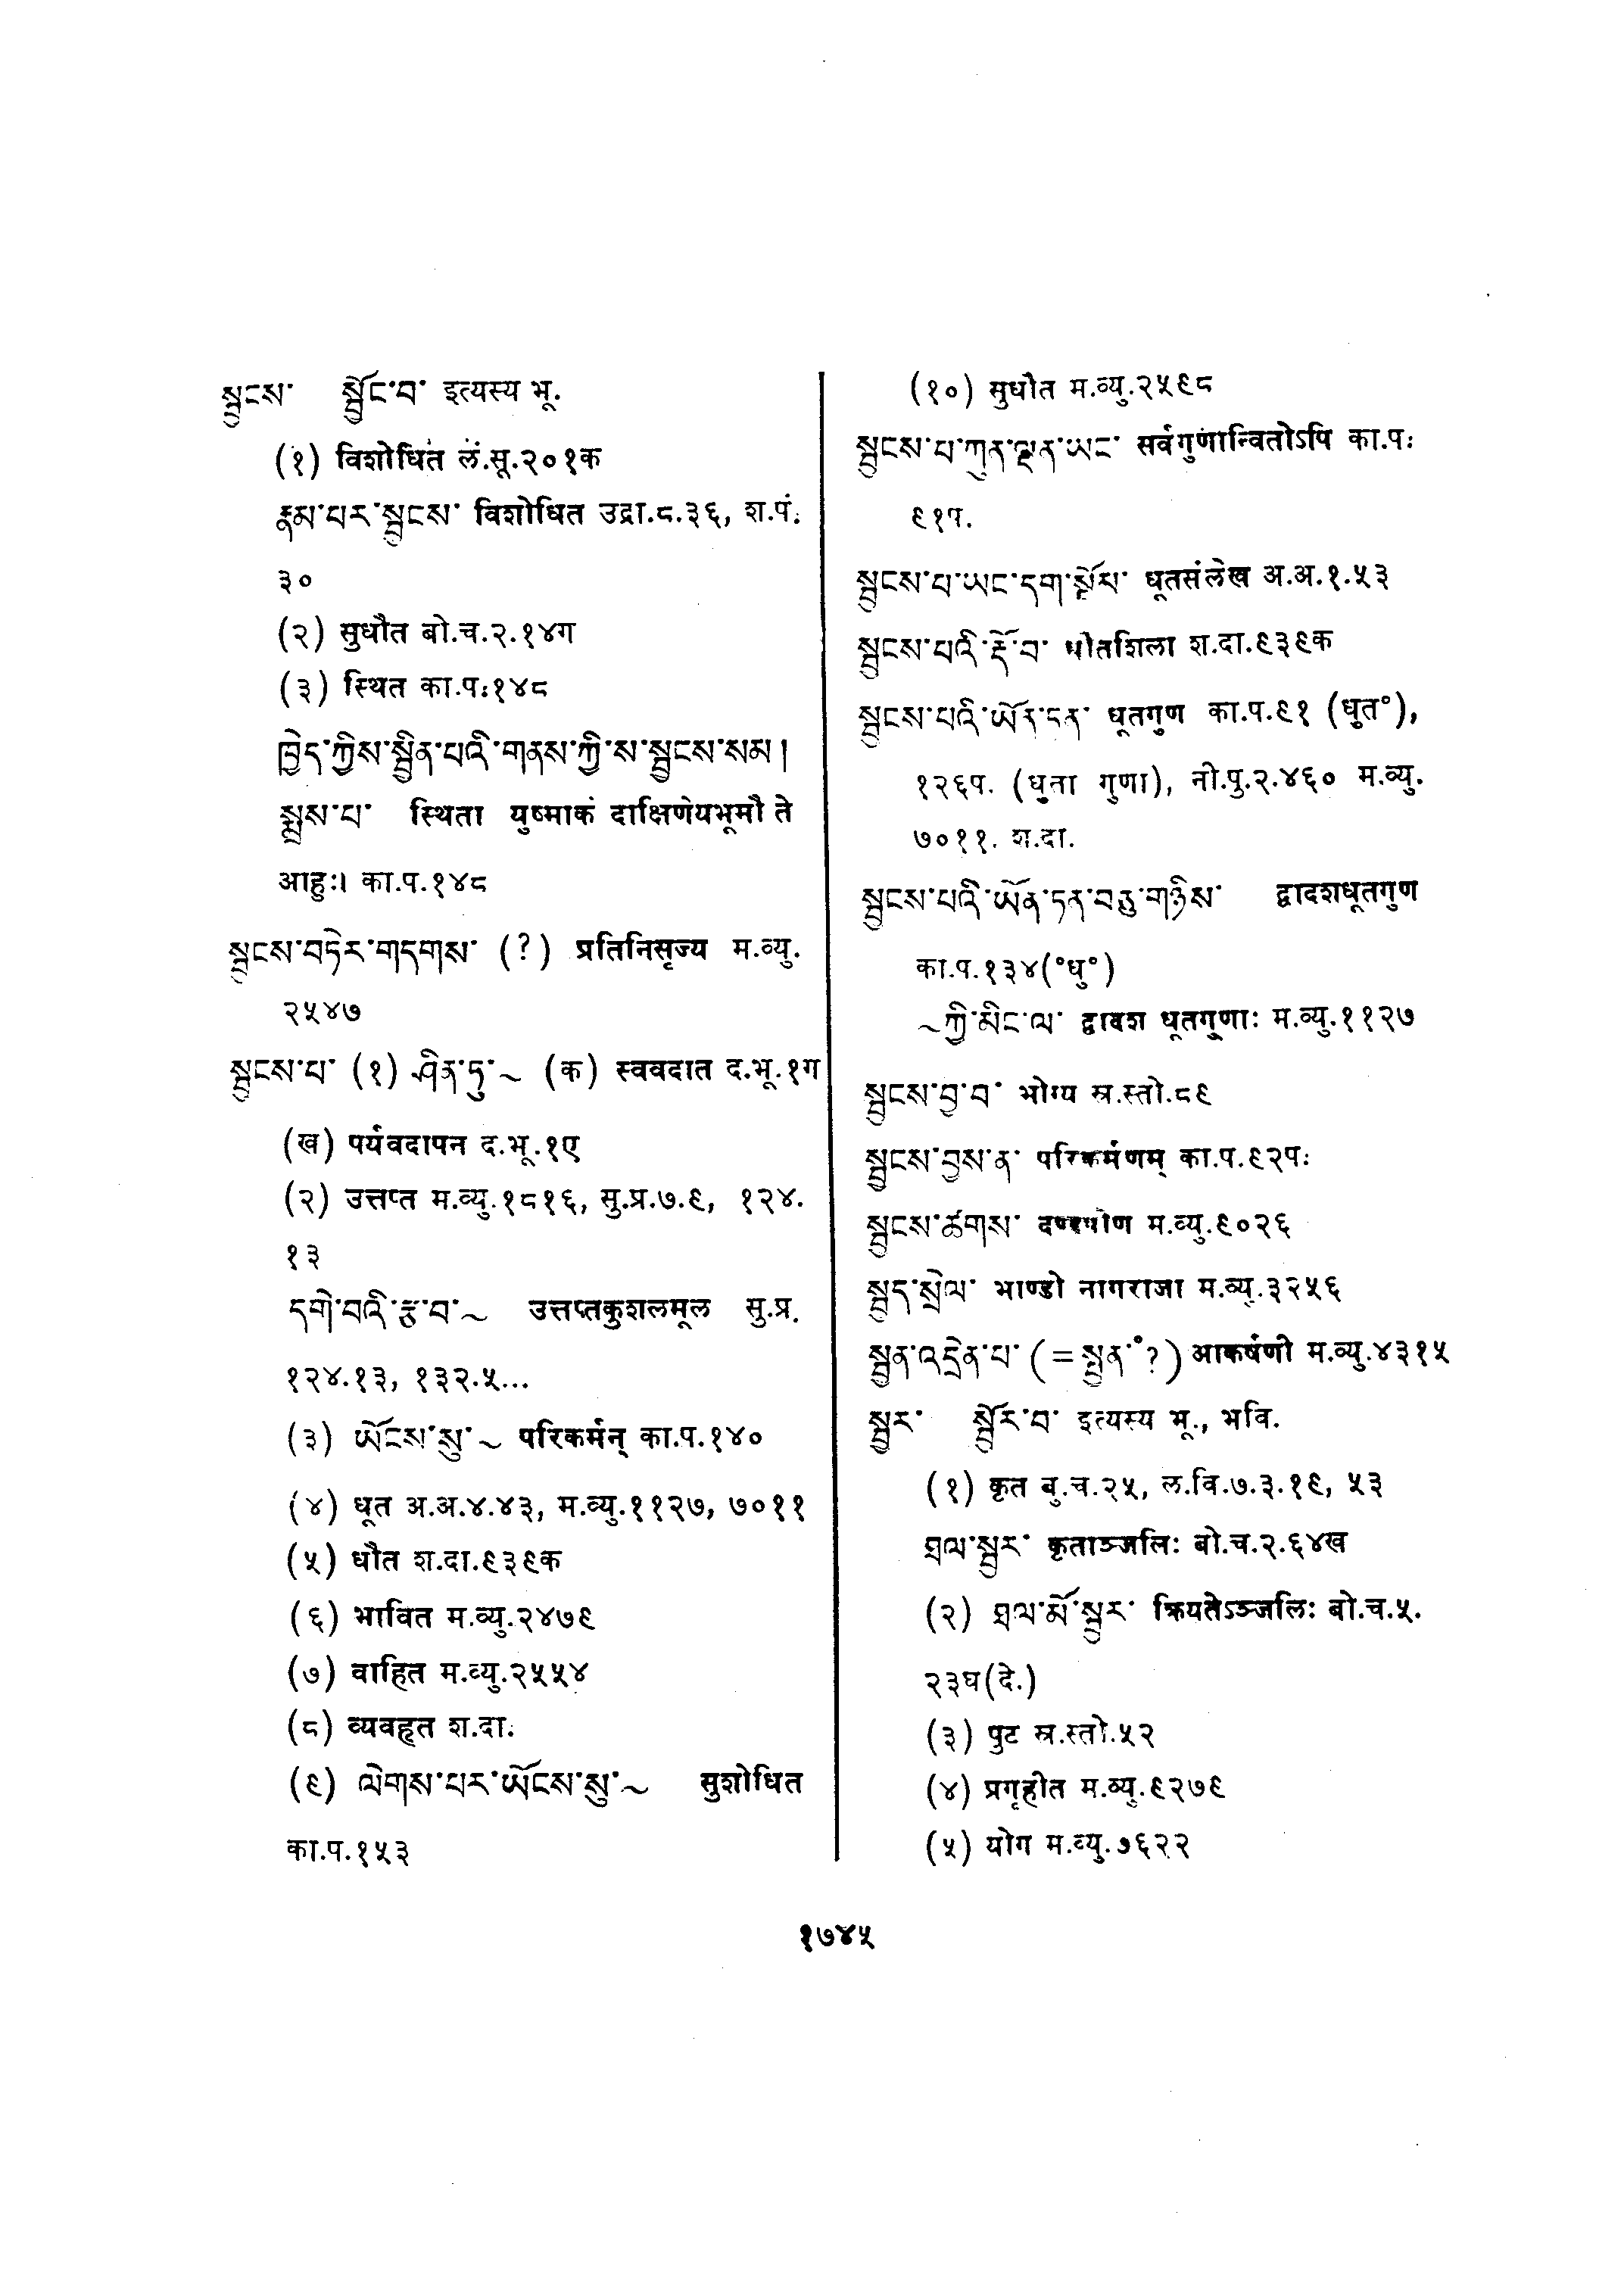 སྦྱངས་ སྦྱོང་བ་ इत्यस्य भू.
(१) विशोधित लं.सू.२०१क
རྣམ་པར་སྦྱངས་ विशोधित उद्रा.८.३६, श.पं.
३०
(२) सुधौत बो.च.२.१४ग
(३) स्थित का.प.१४८
ཁྱེད་ཀྱིས་སྦྱིན་པའི་གནས་ཀྱི་ས་སྦྱངས་སམ།
སྨྲས་པ་ स्थिता युष्माकं दाक्षिणेयभूमौ ते
आहुः। का.प.१४८
སྦྱངས་བཏེར་གདགས་ (?) प्रतिनिसृज्य म.व्यु.
२५४७
སྦྱངས་པ་ (१) ཤིན་ཏུ་~ (क) स्ववदात द.भू.१ग
(ख) पर्यवदापन द.भू.१ए
(२) उत्तप्त म.व्यु.१८१६, सु.प्र.७.९, १२४.
१३
དགེ་བའི་རྩ་བ་~ उत्तप्तकुशलमूल सु.प्र.
१२४.१३, १३२.५...
(३) ཡོངས་སུ་~ परिकर्मन् का.प.१४०
(४) धूत अ.अ.४.४३, म.व्यु.११२७, ७०११
(५) धौत श.दा.९३९क
(६) भावित म.व्यु.२४७९
(७) वाहित म.व्यु.२५५४
(८) व्यवहृत श.दा.
(९) ལེགས་པར་ཡོངས་སུ་~ सुशोधित
का.प.१५३
(१०) सुधौत म.व्यु.२५९८
སྦྱངས་པ་ཀུན་ལྡན་ཡང་ सर्वगुणान्वितोऽपि का.प.
९१प.
སྦྱངས་པ་ཡང་དག་སྡོམ་ धूतसंलेख अ.अ.१.५३
སྦྱངས་པའི་རྡོ་བ་ धौतशिला श.दा.९३९क
སྦྱངས་པའི་ཡོན་ཏན་ धूतगुण का.प.९१ (धुत°),
१२६प. (धुता गुणा), नी.पु.२.४६० म.व्यु.
७०११. श.दा.
སྦྱངས་པའི་ཡོན་ཏན་བཅུ་གཉིས་ द्वादशधूतगुण
का.प.१३४(°धु°)
~ཀྱི་མིང་ལ་ द्वादश धूतगुणाः म.व्यु.११२७
སྦྱངས་བྱ་བ་ भोग्य स्र.स्तो.८९
སྦྱངས་བྱས་ན་ परिकर्मणम् का.प.९२प.
སྦྱངས་ཚགས་ दण्डपोण म.व्यु.९०२६
སྦྱད་སྲེལ་ भाण्डो नागराजा म.व्यु.३२५६
སྦྱན་འདྲེན་པ་ (=སྤྱན་°?) आकर्षणी म.व्यु.४३१५
སྦྱར་ སྦྱོར་བ་ इत्यस्य भू., भवि.
(१) कृत बु.च.२५, ल.वि.७.३.१९, ५३
ཐལ་སྦྱར་ कृताञ्जलिः बो.च.२.६४ख
(२) ཐལ་མོ་སྦྱར་ क्रियतेऽञ्जलिः बो.च.५.
२३घ(दे.)
(३) पुट स्र.स्तो.५२
(४) प्रगृहीत म.व्यु.९२७९
(५) योग म.व्यु.७६२२
१७४५